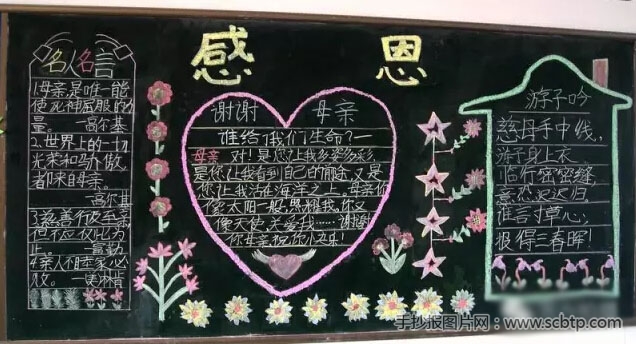 感 恩
名人名言
1.母亲是唯一能
使死神屈服的力
量。 一高尔基
2.世界上的一切
光荣和
都来自母亲。
一高尔基
3.慈善行
但不应仅此为
止。
4.亲人
败。
谢谢 母亲
谁给我们生命?一
母亲 对!是您让我多姿多彩,
是您让我看到自己的前途,又是
您让我活在海洋之上。母亲你
像太阳一般,照耀我,你又
像天使,关爱我……谢谢
你母亲祝你快乐!
游子吟
慈母手中线,
游子身上衣
临行密密缝,
意恐迟迟归,
谁言寸草心,
报得三春晖!
手抄报图片网:www.scbtp.com